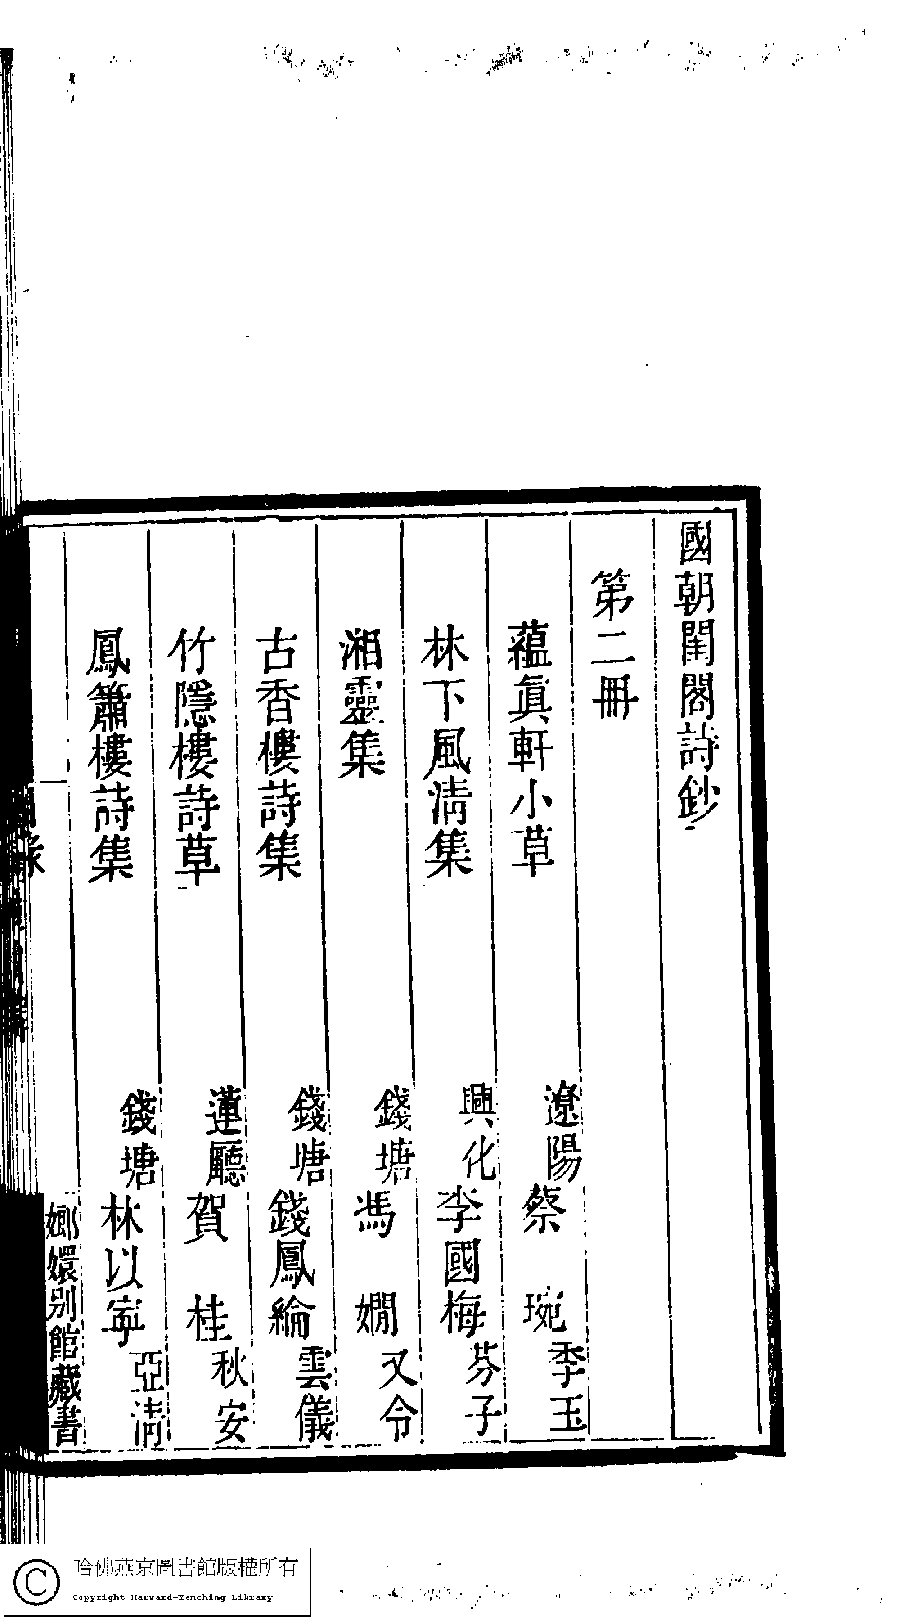 國朝閨閣詩鈔
第二冊
蘊眞軒小草 遼陽 蔡琬 季玉
林下風淸集 興化 李國梅 芬子
湘靈集 錢塘 馮嫺 又令
古香樓詩集 錢塘 錢鳳綸 雲儀
竹隱樓詩草 蓮廳 賀桂 秋安
鳳簫樓詩集 錢塘 林以寧 亞淸
嫏嬛別館藏書
哈佛燕京圖書館版權所有
Copyright Harvard-Yenching Library